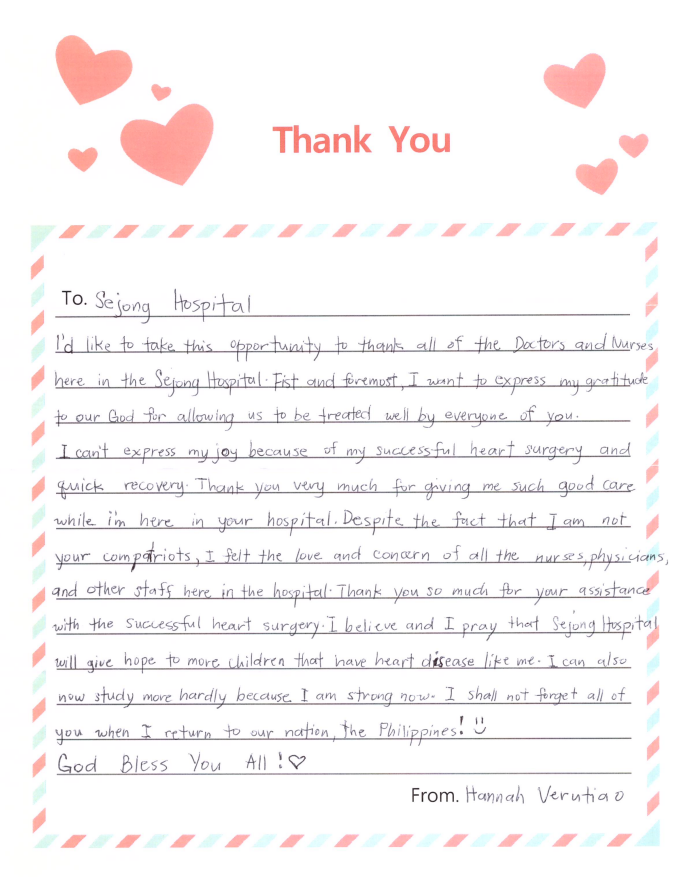 Thank You
To. Sejong Hospital
I'd like to take this opportunity to thank all of the Doctors and Nurses
here in the Sejong Hospital. Fist and foremost, I want to express my gratitude
to our God for allowing us to be treated well by everyone of you.
I can't express my joy because of my successful heart surgery and
quick recovery. Thank you very much for giving me such good care
while i'm here in your hospital. Despite the fact that I am not
your compatriots, I felt the love and concern of all the nurses, physicians,
and other staff here in the hospital. Thank you so much for your assistance
with the successful heart surgery. I believe and I pray that Sejong Hospital
will give hope to more children that have heart disease like me. I can also
now study more hardly because I am strong now. I shall not forget all of
you when I return to our nation, the Philippines!
God Bless You All !♡
From. Hannah Verutiao